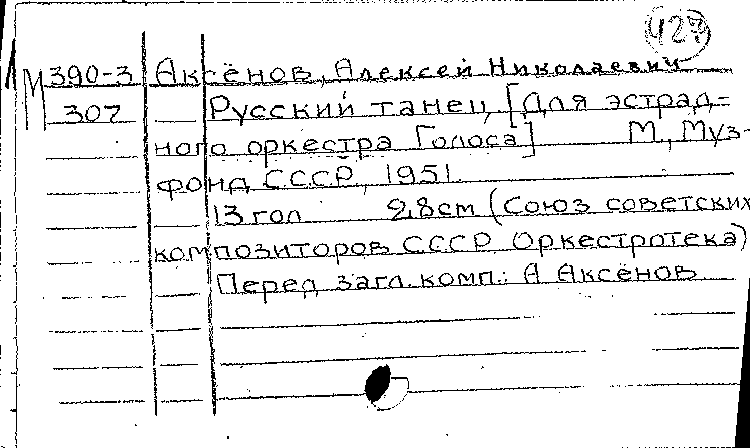 427
М 390-3 Аксёнов, Алексей Николаевич
307 Русский танец, [Для эстрад=
ного оркестра Голоса] М., Муз-
фонд СССР, 1951.
13 гол 28 cm (Союз советских
композиторов СССР Оркестротека)
Перед загл. комп.: А Аксёнов